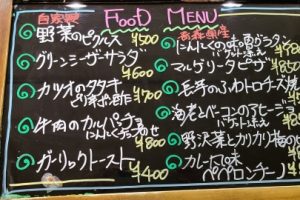 FOOD MENU
自家製
野菜のピクルス ¥500
グリーンシーザーサラダ
¥600
カツオのタタキ
¥700
牛肉のカルパッチョ
にんにく
¥800
ガーリックトースト
¥400
青森県産
にんにくの味噌グラタン
バゲット添え
マルゲリータピザ
¥850
海老とベーコンのアヒージョ
バゲット添え
野沢菜とカリカリ梅の
カレー風味
ペペロンチーノ